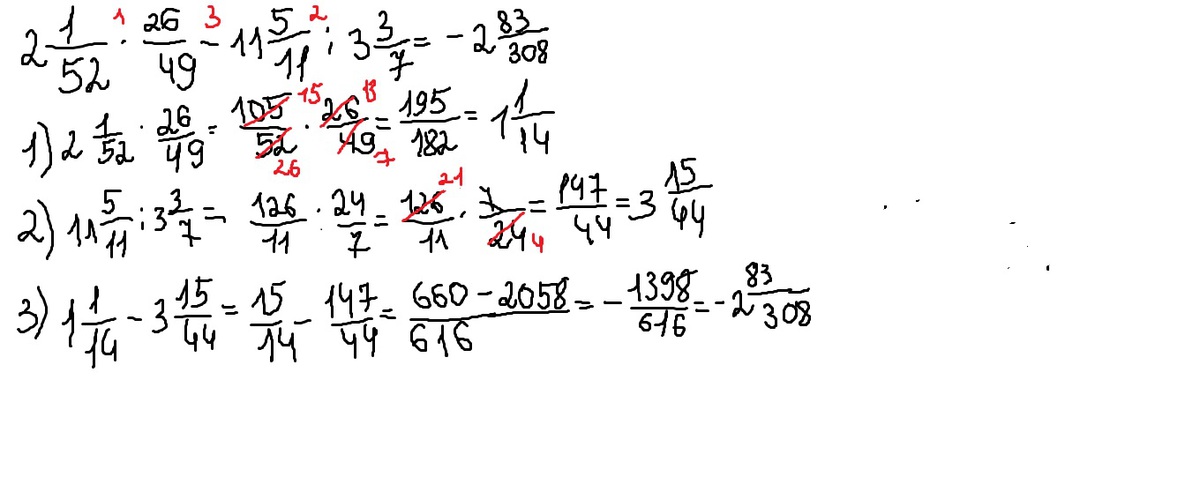 2 1/52 · 26/49 − 11 5/11 : 3 3/7 = − 2 83/308
1) 2 1/52 · 26/49 = 105/52 · 26/49 = 195/182 = 1 1/14
2) 11 5/11 : 3 3/7 = 126/11 : 24/7 = 126/11 · 7/24 = 147/44 = 3 15/44
3) 1 1/14 − 3 15/44 = 15/14 − 147/44 = 660 − 2058/616 = − 1398/616 = − 2 83/308